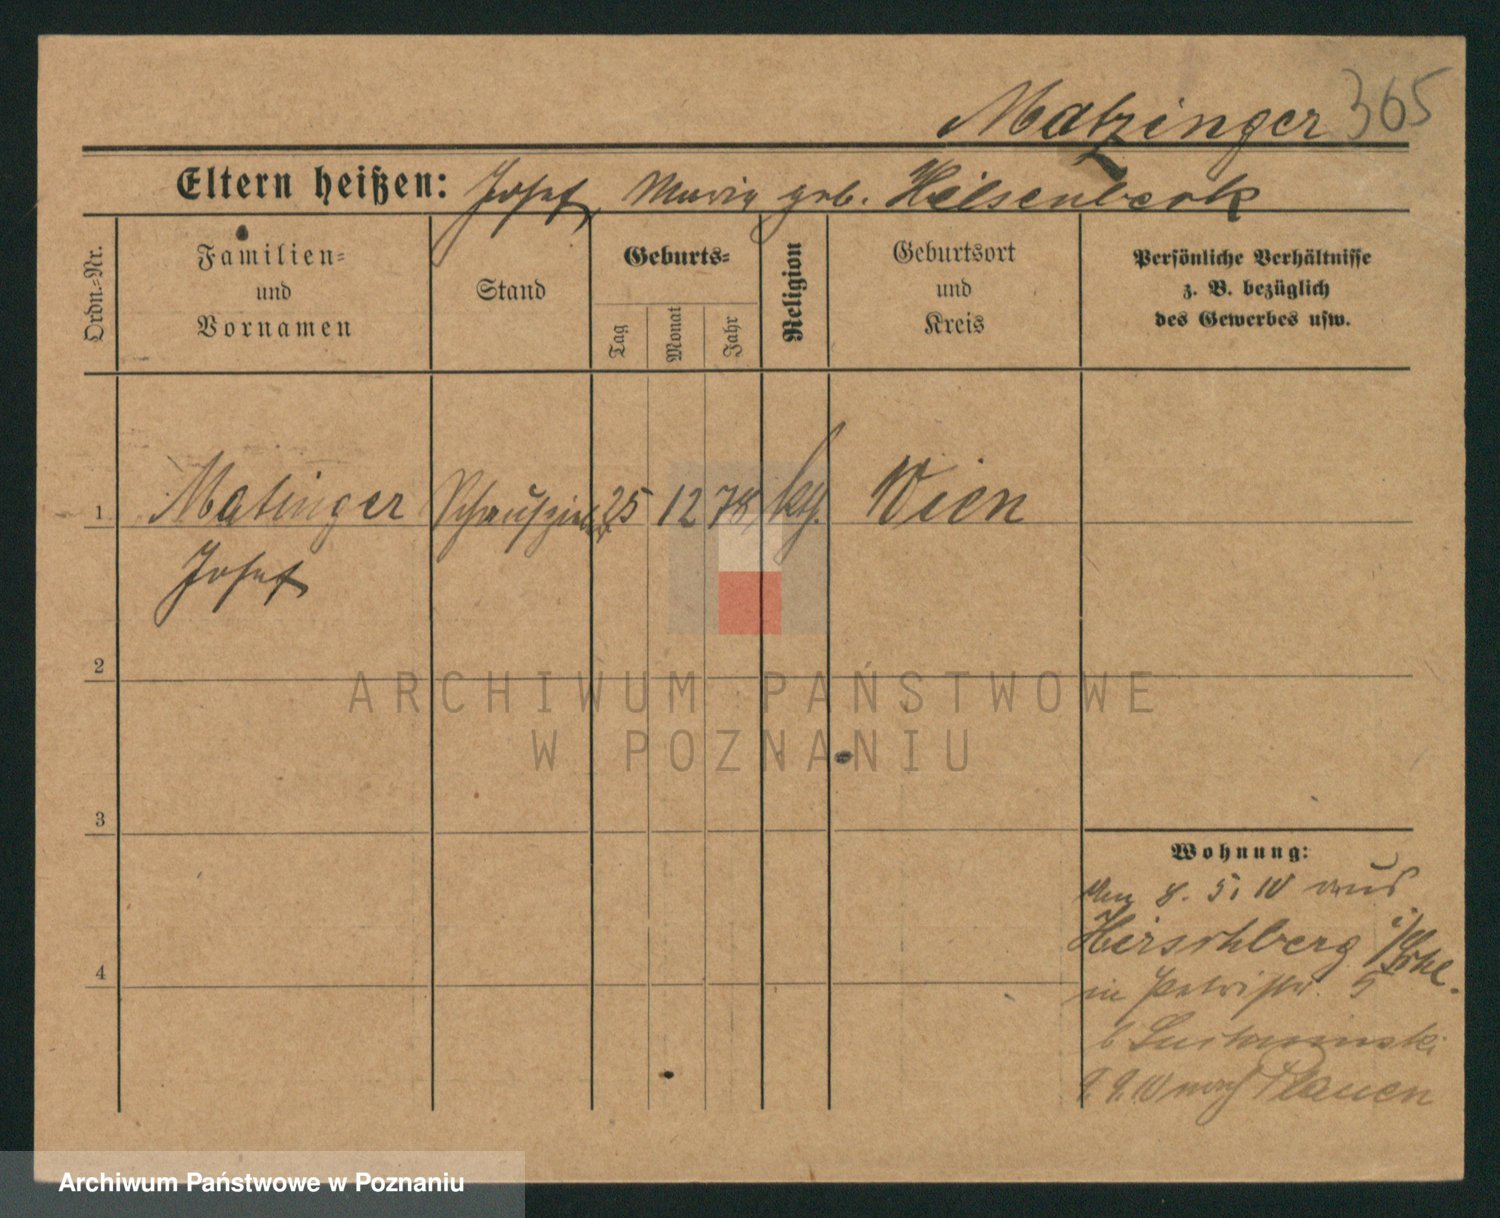 Matzinger 365
Eltern heißen: Josef, Maria geb. Hilsenbeck
Ordn.-Nr.
Familien-
und
Vornamen
Stand
Geburts-
Tag
Monat
Jahr
Religion
Geburtsort
und
Kreis
Persönliche Verhältnisse
z. B. bezüglich
des Gewerbes usw.
1 Matinger Schauspieler 25 12 78 kth. Wien
Josef
2
3
4
Wohnung:
Am 8. 5. 10 aus
Hirschberg i/Schl.
in Petristr. 5
b
9. 10 nach Plauen
ARCHIWUM PAŃSTWOWE
W POZNANIU
Archiwum Państwowe w Poznaniu